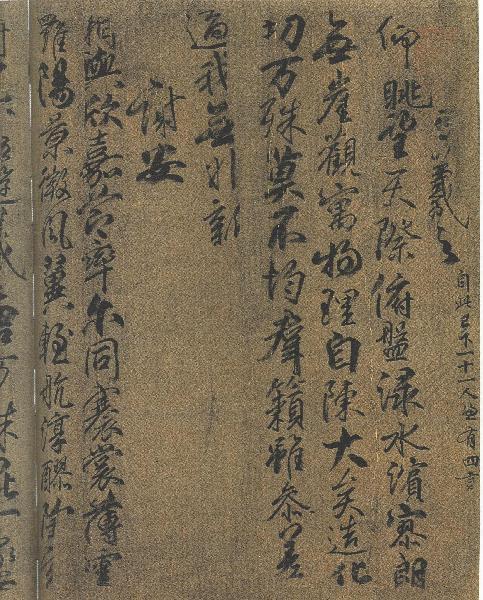 王羲之 自此已下一十一人並有四言
仰眺望天際俯盤淥水濱寥朗
無崖觀寓物理自陳大矣造化
功万殊莫不均羣籟雖參差
適我無非新
謝安
相與欣嘉節率尔同褰裳薄雲
羅陽景微風翼輕航淳醪陶元